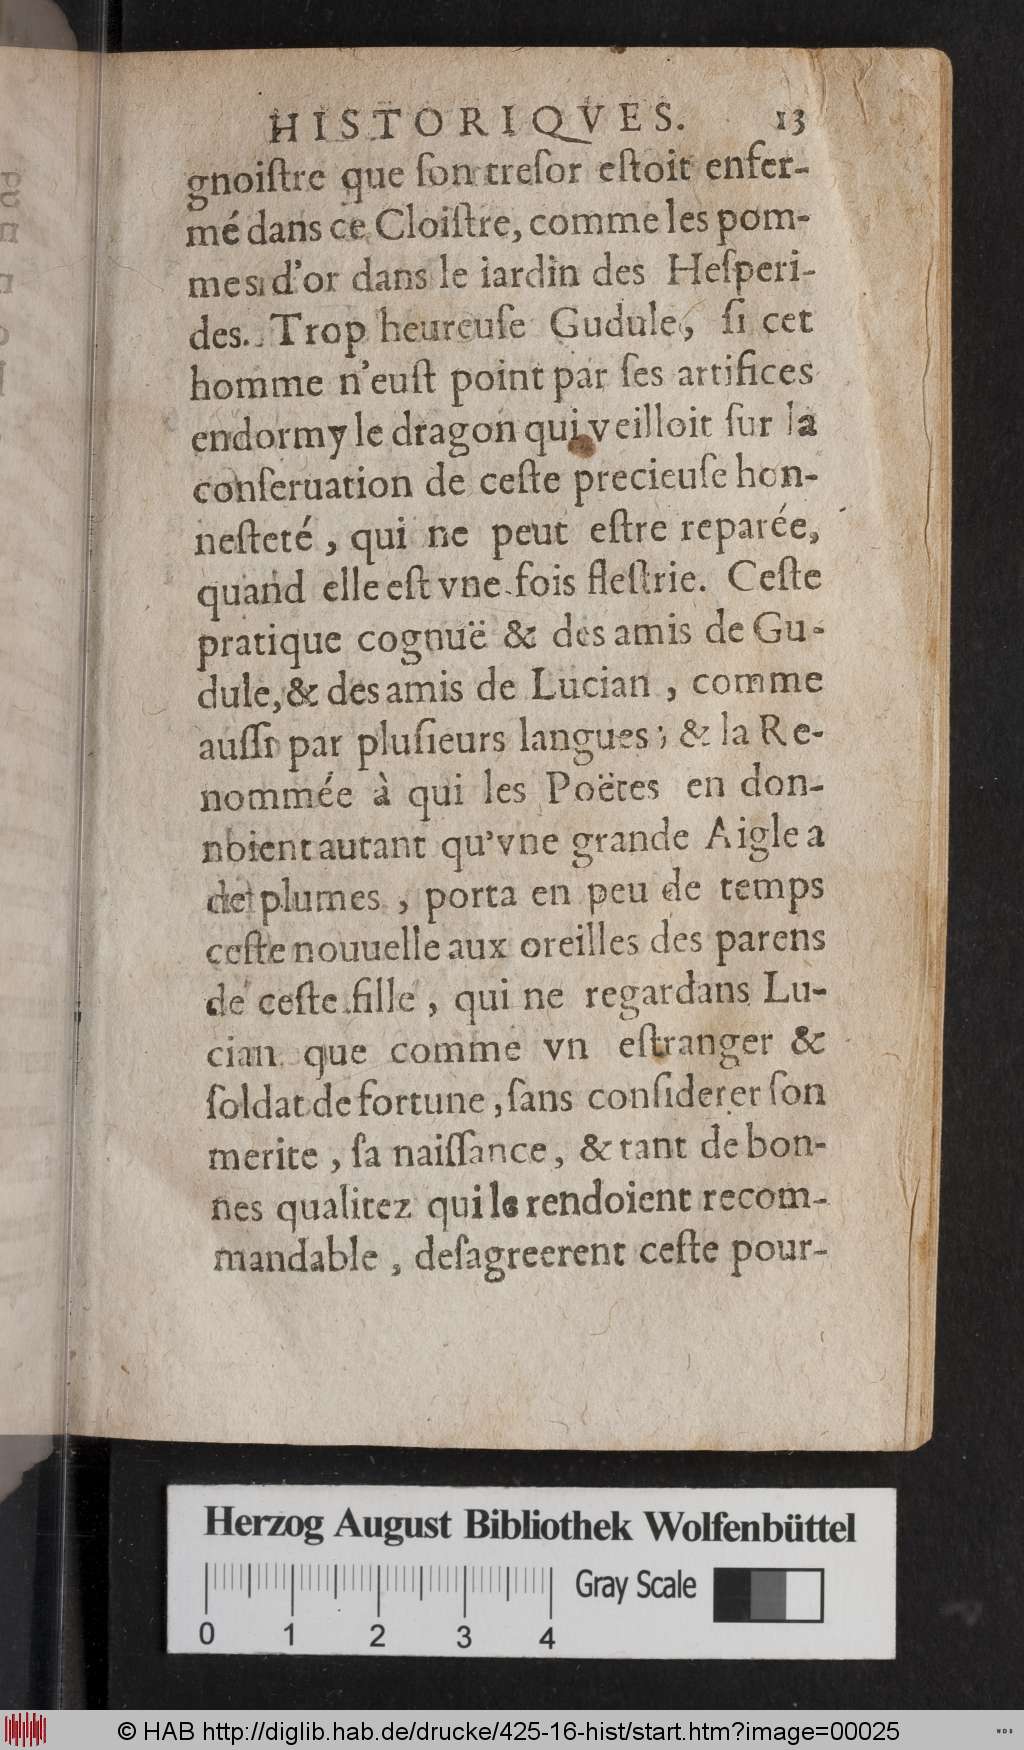 HISTORIQVES. 13
gnoiſtre que ſon treſor eſtoit enfer-
mé dans ce Cloiſtre, comme les pom-
mes d'or dans le iardin des Heſperi-
des. Trop heureuſe Gudule, ſi cet
homme n'euſt point par ſes artifices
endormy le dragon qui veilloit ſur la
conſeruation de ceſte precieuſe hon-
neſteté, qui ne peut eſtre reparée,
quand elle eſt vne fois fleſtrie. Ceſte
pratique cognuë & des amis de Gu-
dule, & des amis de Lucian, comme
auſſi par pluſieurs langues; & la Re-
nommée à qui les Poëtes en don-
noient autant qu'vne grande Aigle a
de plumes, porta en peu de temps
ceſte nouuelle aux oreilles des parens
de ceſte fille, qui ne regardans Lu-
cian que comme vn eſtranger &
ſoldat de fortune, ſans conſiderer ſon
merite, ſa naiſſance, & tant de bon-
nes qualitez qui le rendoient recom-
mandable, deſagreerent ceſte pour-
Herzog August Bibliothek Wolfenbüttel
Gray Scale
0 1 2 3 4
© HAB http://diglib.hab.de/drucke/425-16-hist/start.htm?image=00025